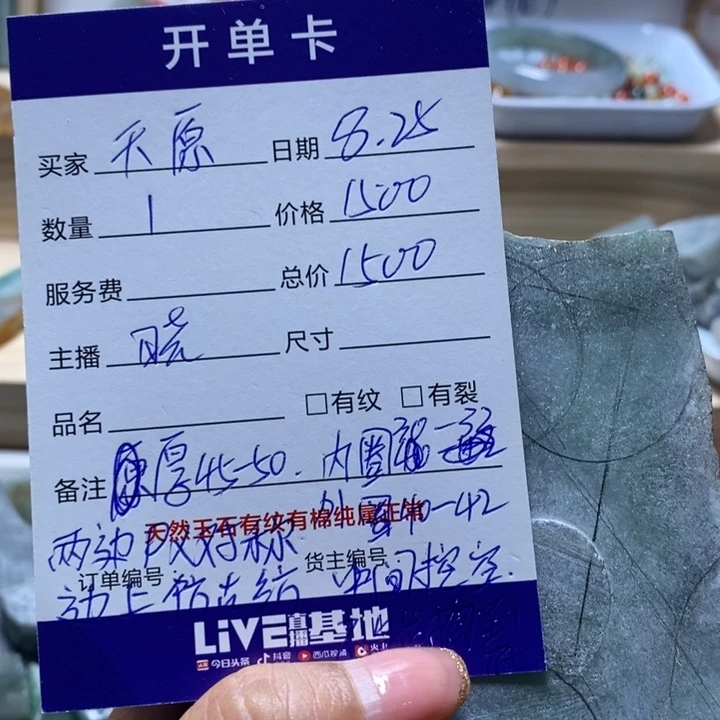 开单卡
买家 天愿 日期 8.25
数量 1 价格 1500
服务费 总价 1500
主播 晓 尺寸
品名 □有纹 □有裂
备注 厚45-50. 内圈
天然玉石有纹有棉纯属正常
40-42
两边 对称
订单编号 货主编号
边上仿古结 中间挖空.
LiVE直播基地
今日头条 抖音 西瓜视频 火山